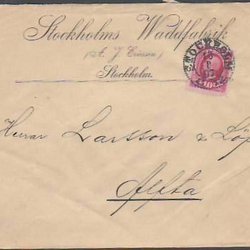 Stockholms Waddfabrik
(A. J. Ericsson)
Stockholm.
STOCKHOLM
Herrar Larsson &
Alfta